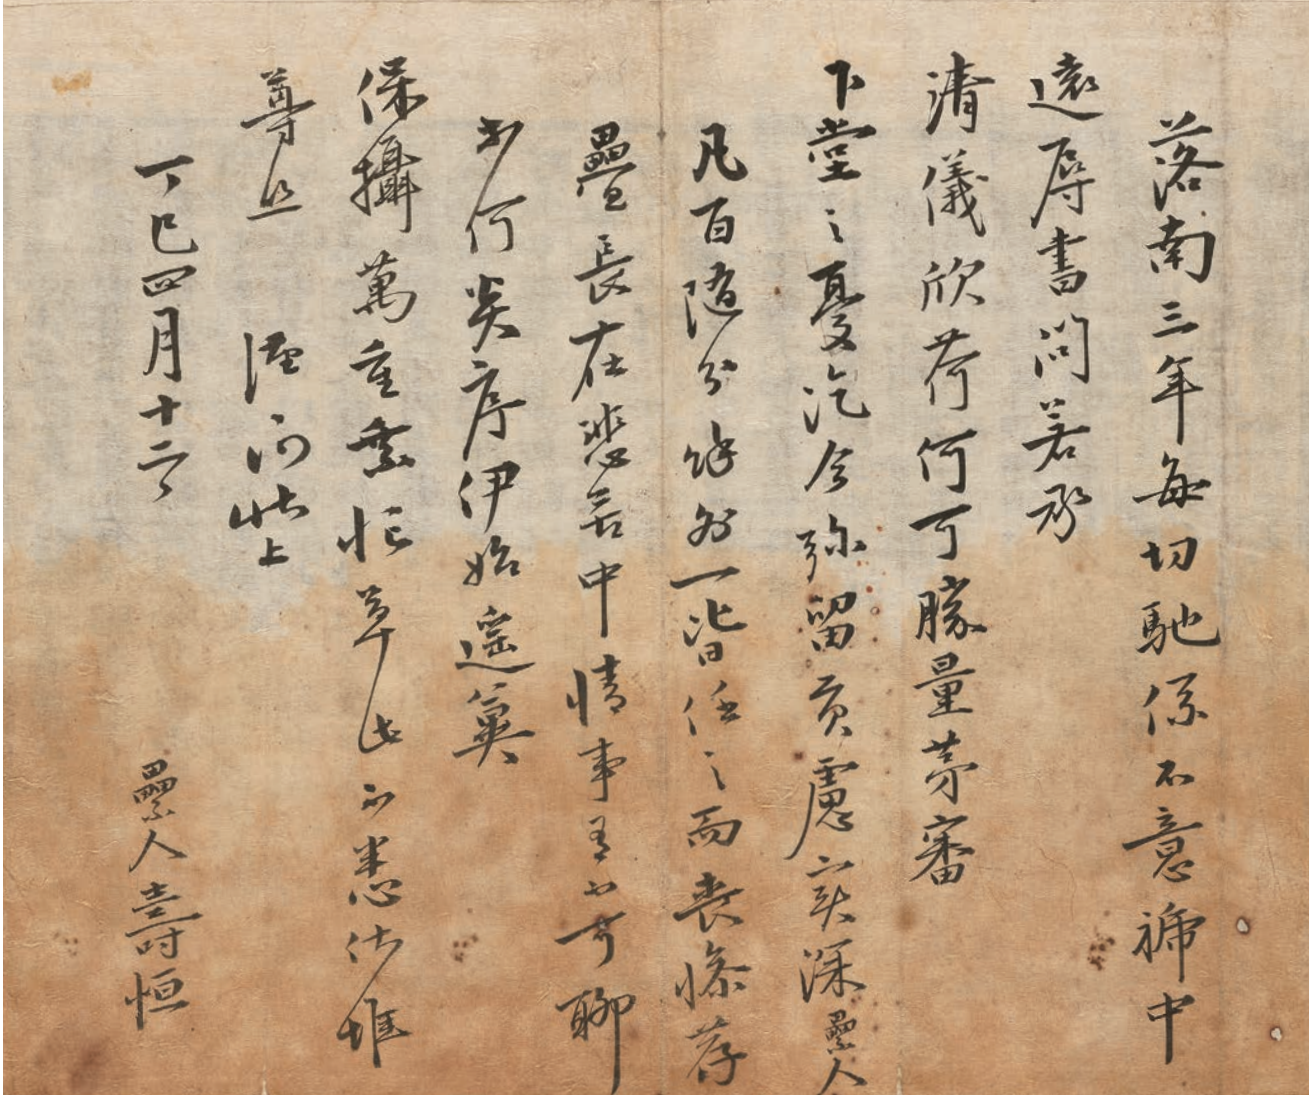 落南三年每切馳係不意禠中
遠辱書問若承
清儀欣荷何可勝量苐審
下堂之憂汔今弥留貢慮實深纍人
凡百隨分餘外一皆任之而喪慘荐
疊長在悲苦中情事有何可聊
何炎序伊始遙冀
保攝萬重業忙草此不悉伏惟
尊照 謹 狀上
丁巳四月十二 纍人壽恒